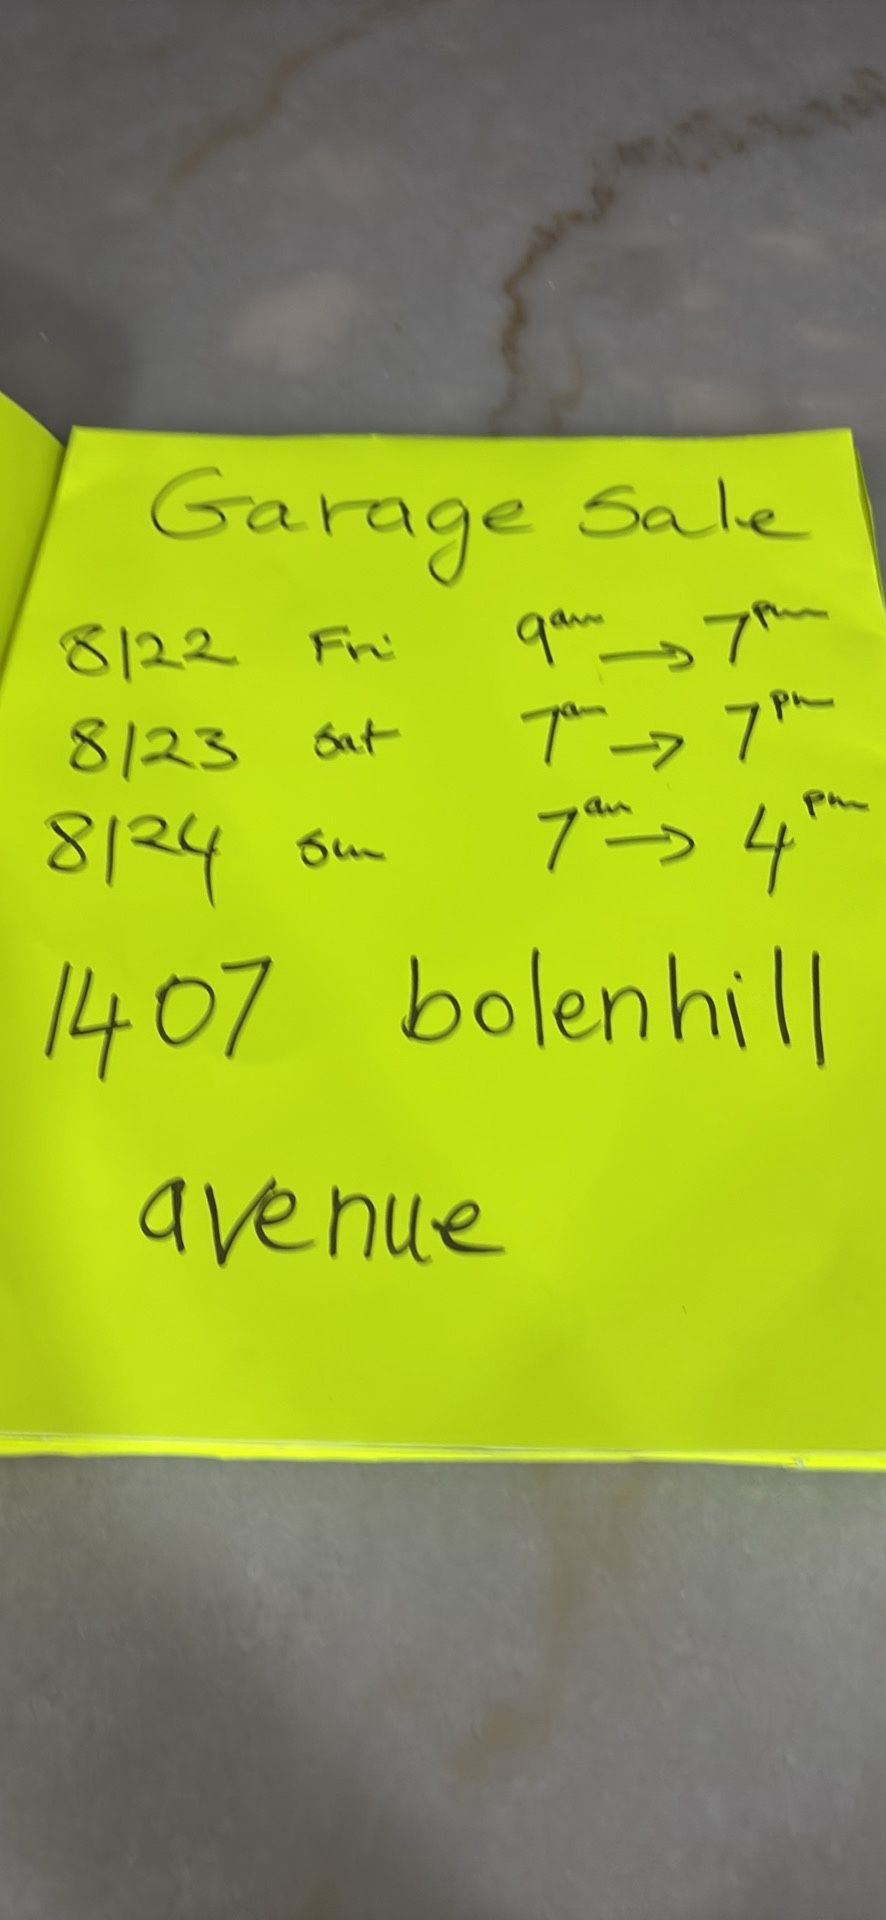 Garage Sale
8/22 Fri 9am → 7pm
8/23 Sat 7am → 7pm
8/24 Sun 7am → 4pm
1407 bolenhill
avenue